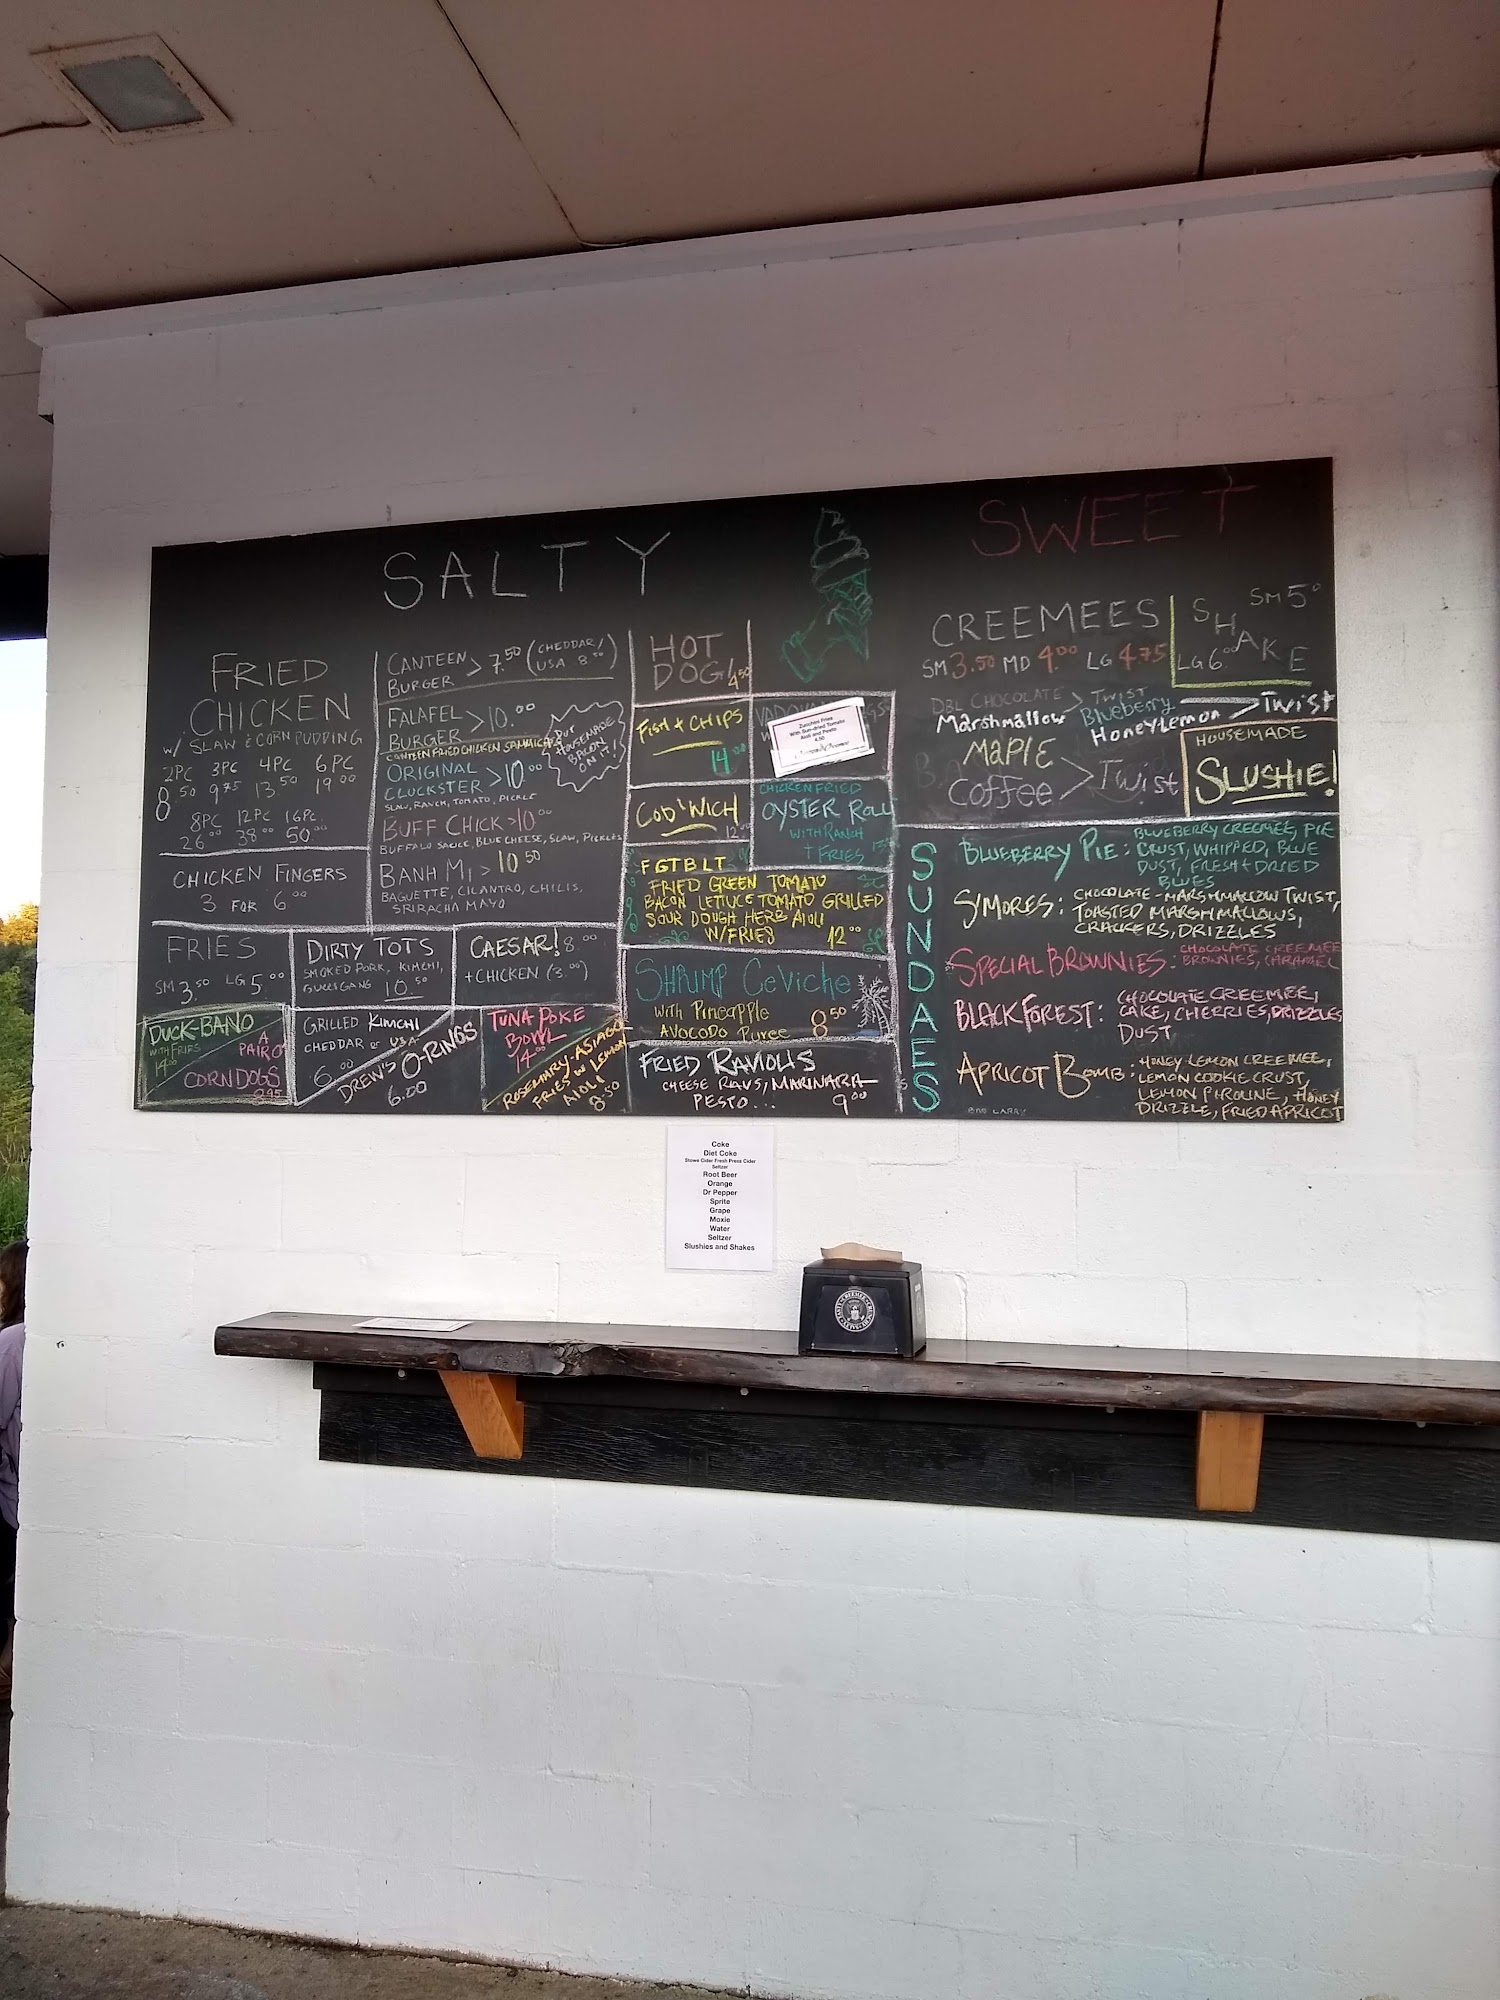 SALTY
FRIED
CHICKEN
W/ SLAW & CORN PUDDING
2PC 3PC 4PC 6PC
8.50 9.75 13.50 19.00
8PC 12PC 16PC
26.00 38.00 50.00
CHICKEN FINGERS
3 FOR 6.00
CANTEEN
BURGER > 7.50 (CHEDDAR/
USA 8.50)
FALAFEL
BURGER > 10.00
PUT
HOUSEMADE
BACON
ON IT!
CANTEEN FRIED CHICKEN SAMMICHES
ORIGINAL
CLUCKSTER > 10.00
SLAW, RANCH, TOMATO, PICKLE
BUFF CHICK > 10.00
BUFFALO SAUCE, BLUE CHEESE, SLAW, PICKLES
BANH MI > 10.50
BAGUETTE, CILANTRO, CHILIS,
SRIRACHA MAYO
FRIES
SM 3.50 LG 5.00
DIRTY TOTS
SMOKED PORK, KIMCHI,
10.50
CAESAR! 8.00
+CHICKEN (3.00)
DUCK-BANO
WITH FRIES
14.00
A
PAIR O'
CORN DOGS
8.95
GRILLED KIMCHI
CHEDDAR or USA
6.00
DREW'S O-RINGS
6.00
TUNA POKE
BOWL
14.00
ROSEMARY-ASIAGO
FRIES W LEMON
AIOLI
8.50
HOT
DOG/ 4.50
FISH + CHIPS
14.00
Zucchini Fries
With Sun-dried Tomato
Aioli and Pesto
COD'WICH
12.00
CHICKEN FRIED
OYSTER ROLL
WITH RANCH
+ FRIES
FGTBLT
FRIED GREEN TOMATO
BACON LETTUCE TOMATO GRILLED
SOUR DOUGH HERB AIOLI
W/FRIES 12.00
SHRIMP CeVICHE
WITH PINEAPPLE
AVOCODO PUREE 8.50
FRIED RAVIOLIS
CHEESE RAVS, MARINARA
PESTO... 9.00
SWEET
CREEMEES
SM 3.50 MD 4.00 LG 4.75
SHAKE
SM 5.00
LG 6.00
DBL CHOCOLATE
Marshmallow > TWIST
Blueberry
HoneyLemon > Twist
MAPLE
Coffee > Twist
HOUSEMADE
SLUSHIE!
SUNDAES
BLUEBERRY PIE: BLUEBERRY CREEMEE, PIE
CRUST, WHIPPED, BLUE
DUST, FRESH + DRIED
BLUES
S'MORES: CHOCOLATE-MARSHMALLOW TWIST,
TOASTED MARSHMALLOWS,
CRACKERS, DRIZZLES
SPECIAL BROWNIES: CHOCOLATE CREEMEE
BROWNIES, CARAMEL
BLACK FOREST: CHOCOLATE CREEMEE,
CAKE, CHERRIES, DRIZZLES
DUST
APRICOT BOMB: HONEY LEMON CREEMEE,
LEMON COOKIE CRUST,
LEMON PIROLINE, HONEY
DRIZZLE, FRIED APRICOT
Coke
Diet Coke
Stowe Cider Fresh Press Cider
Seltzer
Root Beer
Orange
Dr Pepper
Sprite
Grape
Moxie
Water
Seltzer
Slushies and Shakes